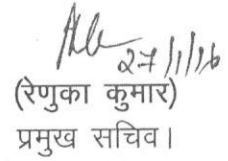 27/1/16
(रेणुका कुमार)
प्रमुख सचिव।